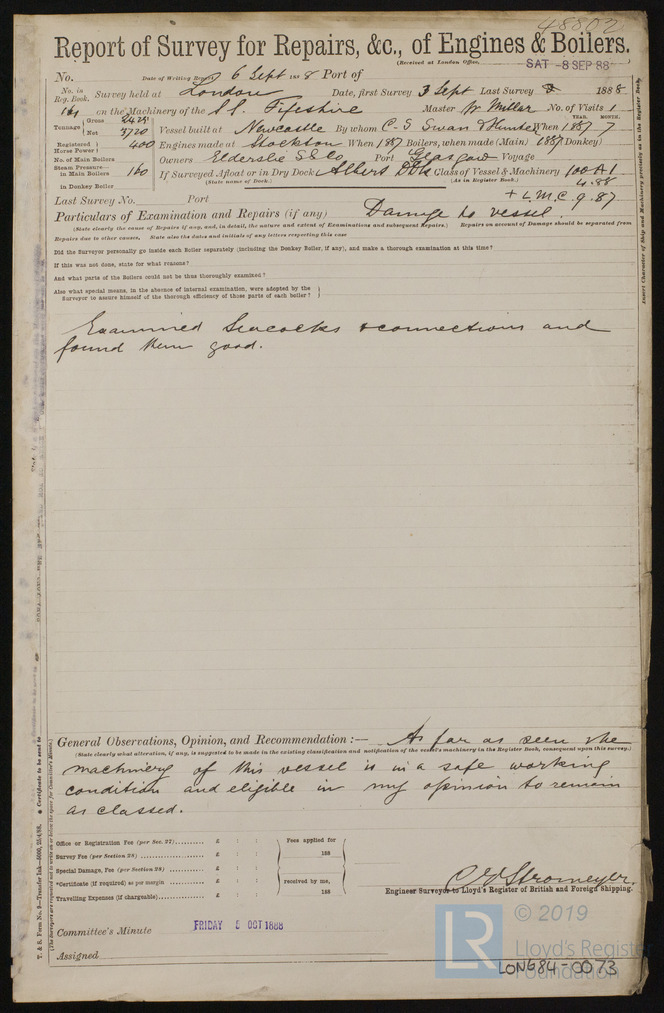 48802
Report of Survey for Repairs, &c., of Engines & Boilers.
(Received at London Office, SAT -8 SEP 88
No. Date of Writing Report 6 Sept 1888 Port of
No. in Reg. Book. Survey held at London Date, first Survey 3 Sept Last Survey 1888
161 on the Machinery of the S.S. Fifeshire Master W Miller No. of Visits 1
Tonnage Gross 2425 Net 3720 Vessel built at Newcastle By whom C. S Swan & Hunter When YEAR. 1887 MONTH. 7
Registered Horse Power 400 Engines made at Stockton When 1887 Boilers, when made (Main) 1887 (Donkey)
No. of Main Boilers Owners Elderslie SS Co Port Glasgow Voyage
Steam Pressure— in Main Boilers 160 If Surveyed Afloat or in Dry Dock Albert DDk Class of Vessel & Machinery 100 A 1
(State name of Dock.) (As in Register Book.) 4.88
in Donkey Boiler
+ L.M.C. 9.87
Last Survey No. Port
Particulars of Examination and Repairs (if any) Damage to vessel.
(State clearly the cause of Repairs if any, and, in detail, the nature and extent of Examinations and subsequent Repairs.) Repairs on account of Damage should be separated from
Repairs due to other causes, State also the dates and initials of any letters respecting this case
Did the Surveyor personally go inside each Boiler separately (including the Donkey Boiler, if any), and make a thorough examination at this time?
If this was not done, state for what reasons?
And what parts of the Boilers could not be thus thoroughly examined?
Also what special means, in the absence of internal examination, were adopted by the
Surveyor to assure himself of the thorough efficiency of those parts of each boiler?
Examined Seacocks & connections and
found them good.
General Observations, Opinion, and Recommendation :— As far as seen the
(State clearly what alteration, if any, is suggested to be made in the existing classification and notification of the vessel's machinery in the Register Book, consequent upon this survey.)
machinery of this vessel is in a safe working
condition and eligible in my opinion to remain
as classed.
Office or Registration Fee (per Sec. 27) £ : : Fees applied for
Survey Fee (per Section 28) £ : : 188
Special Damage, Fee (per Section 28) £ : :
*Certificate (if required) as per margin £ : : received by me,
Travelling Expenses (if chargeable) £ : : 188
C E Stromeyer.
Engineer Surveyor to Lloyd's Register of British and Foreign Shipping.
Committee's Minute FRIDAY 5 OCT 1888
Assigned
© 2019
LR Lloyd's Register Foundation
LON684-0073
Insert Character of Ship and Machinery precisely as in the Register Book.
T. & S. Form No. 9—Transfer Ink—5000, 25/4/88. * Certificate to be sent to
(The Surveyors are requested not to write on or below the space for Committee's Minute.)